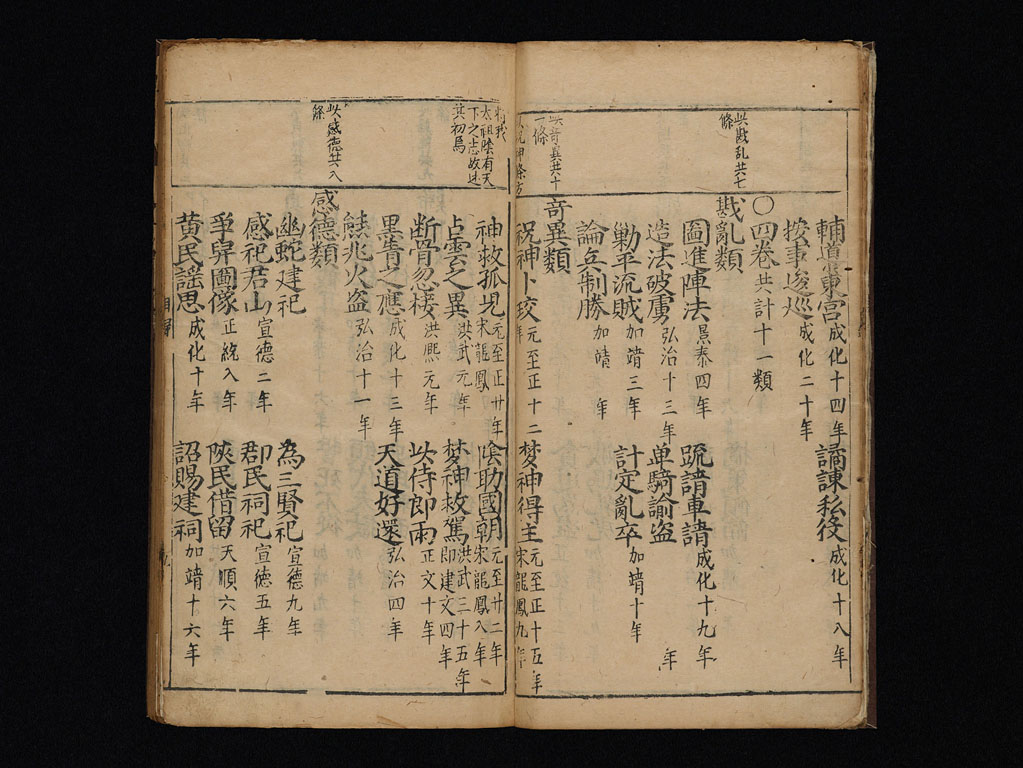 輔導東宮成化十四年 譎諫私後成化十八年
按事逡巡成化二十年
〇四卷共計十一類
戡亂類
此戡乱共七條
圖進陣法景泰四年 疏請車請成化十九年
造法破虜弘治十三年 單騎諭盗 年
勦平流賊加靖三年 計定亂卒加靖十年
論兵制勝加靖 年
奇異類
此奇異共十一條
祝神卜珓元至正十二年 梦神得主元至正十五年宋龍鳳九年
神救孤児元至正廿年宋龍鳳 隂助國朝元至廿二年宋龍鳳八年
太祖隂有天下之志故述其初焉
占雲之異洪武元年 梦神救駕洪武三十五年即建文四年
断骨忽棲洪熈元年 以侍即雨正文十年
黒眚之應成化十三年 天道好還弘治四年
熊兆火盗弘治十一年
感德類
此感德共八條
幽蛇建祀 為三賢祀宣德九年
感祀君山宣德二年 郡民祠祀宣德五年
爭舁圖像正統八年 陝民借留天順六年
黄民謡思成化十年 詔賜建祠加靖十六年